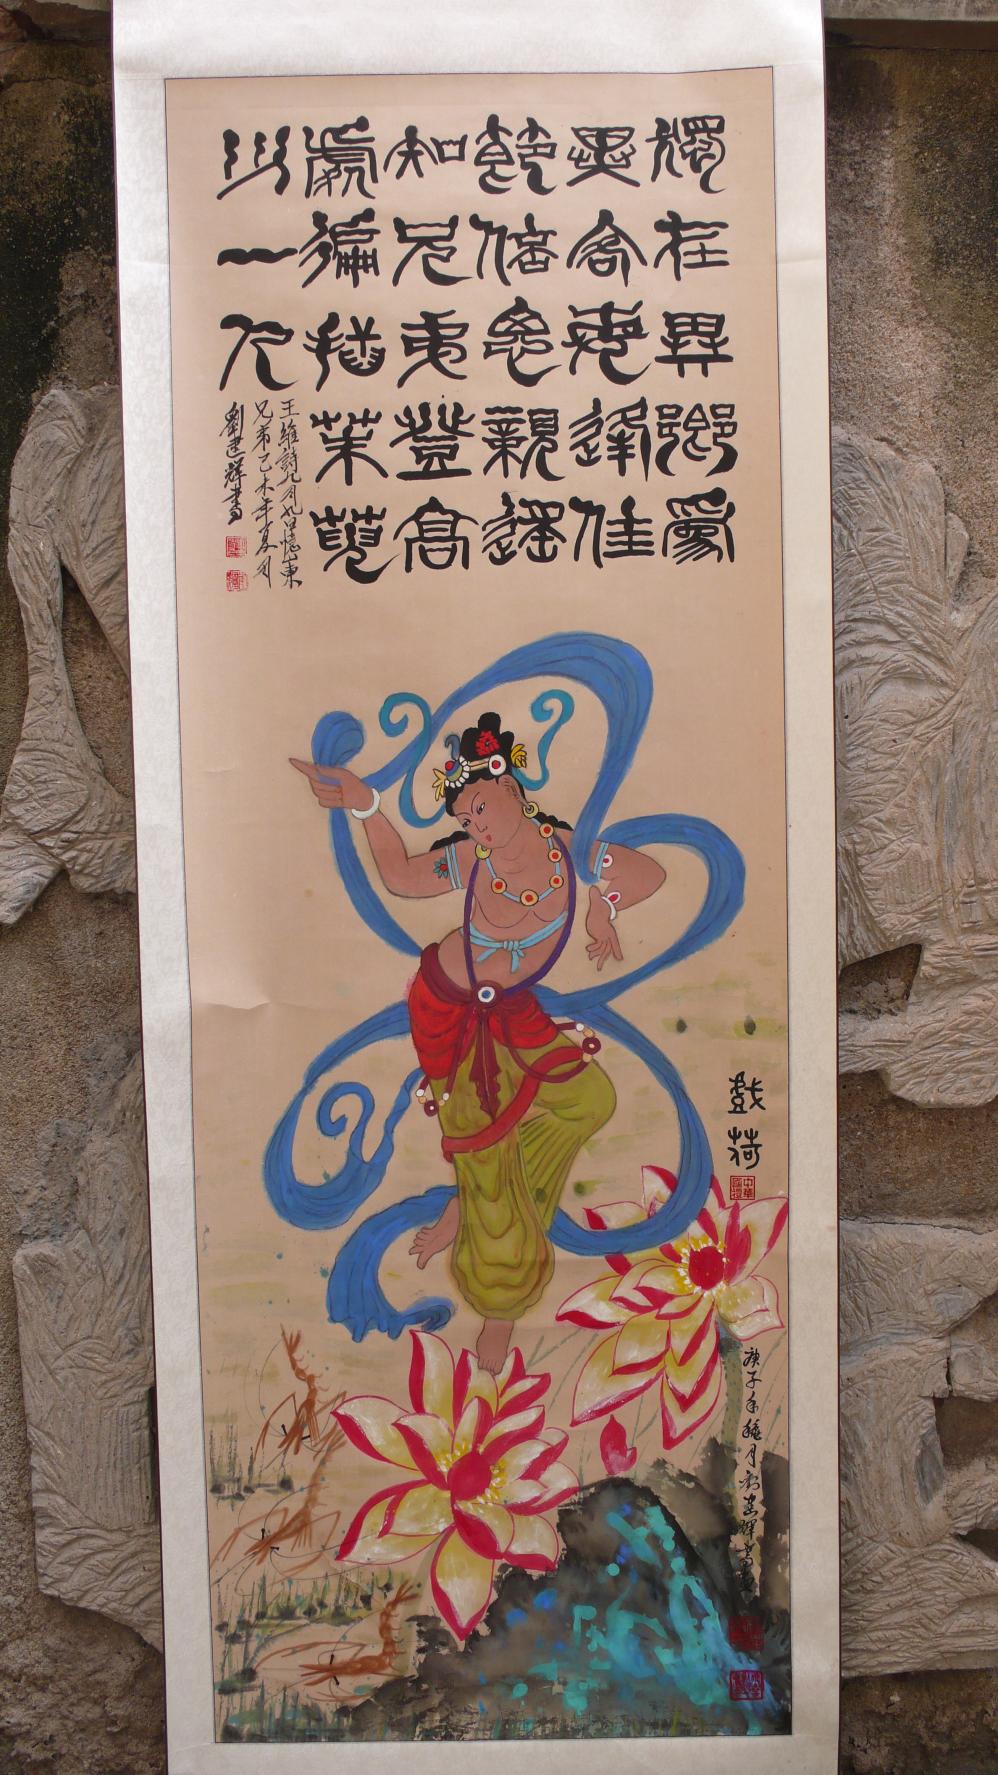 獨在異鄉爲
異客每逢佳
節倍思親遙
知兄弟登高
處徧插茱萸
少一人
王維詩九月九日憶山東
兄弟乙未年夏月
劉建輝書
戲荷
庚子年穐月劉建輝